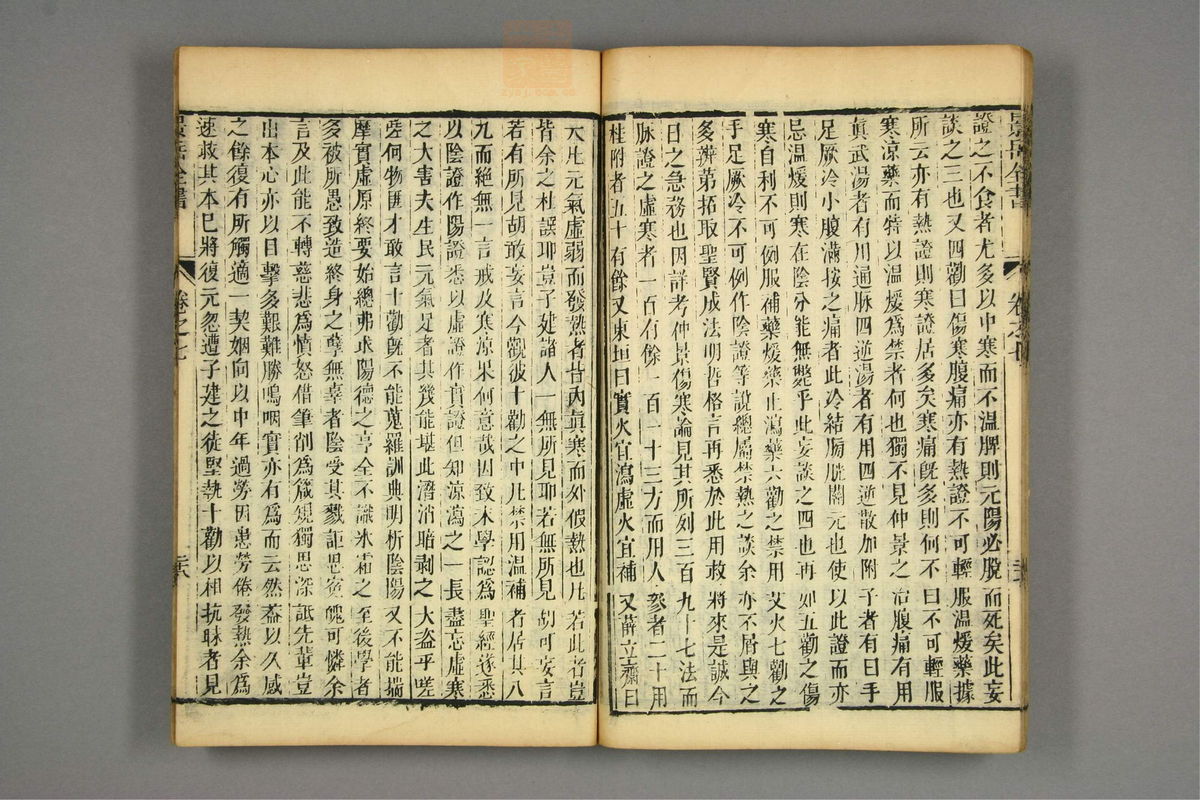 景岳全書
卷之七
證之不食者尤多以中寒而不溫脾則元陽必脫而死矣此妄
談之三也又四勸曰傷寒腹痛亦有熱證不可輕服溫煖藥據
所云亦有熱證則寒證居多矣寒痛旣多則何不曰不可輕服
寒涼藥而特以溫煖爲禁者何也獨不見仲景之治腹痛有用
眞武湯者有用通脉四逆湯者有用四逆散加附子者有曰手
足厥冷小腹滿按之痛者此冷結膀胱關元也使以此證而亦
忌溫煖則寒在陰分能無斃乎此妄談之四也再如五勸之傷
寒自利不可例服補藥煖藥止瀉藥六勸之禁用艾火七勸之
手足厥冷不可例作陰證等說總屬禁熱之談余亦不屑與之
多辨第拓取聖賢成法明哲格言再悉於此用救將來是誠今
日之急務也因詳考仲景傷寒論見其所列三百九十七法而
脉證之虛寒者一百有餘一百一十三方而用人參者二十用
桂附者五十有餘又東垣曰實火宜瀉虛火宜補又薛立齋曰
大凡元氣虛弱而發熱者皆內眞寒而外假熱也凡若此者豈
皆余之杜誤耶豈子建諸人一無所見耶若無所見胡可妄言
若有所見胡敢妄言今觀彼十勸之中凡禁用溫補者居其八
九而絕無一言戒及寒涼果何意哉因致末學認爲聖經遂悉
以陰證作陽證悉以虛證作實證但知涼瀉之一長盡忘虛寒
之大害夫生民元氣足者其幾能堪此潛消暗剥之大盗乎嗟
嗟何物匪才敢言十勸旣不能蒐羅訓典明析陰陽又不能揣
摩實虛原終要始總弗求陽德之亨全不識氷霜之至後學者
多被所愚致造終身之孽無辜者陰受其戮詎思寃魄可憐余
言及此能不轉慈悲爲憤怒借筆削爲箴規獨思深詆先輩豈
出本心亦以目擊多艱難勝嗚咽實亦有爲而云然葢以久感
之餘復有所觸適一契姻向以中年過勞因患勞倦發熱余爲
速救其本已將復元忽遭子建之徒堅執十勸以相抗昧者見
景岳全書
卷之七